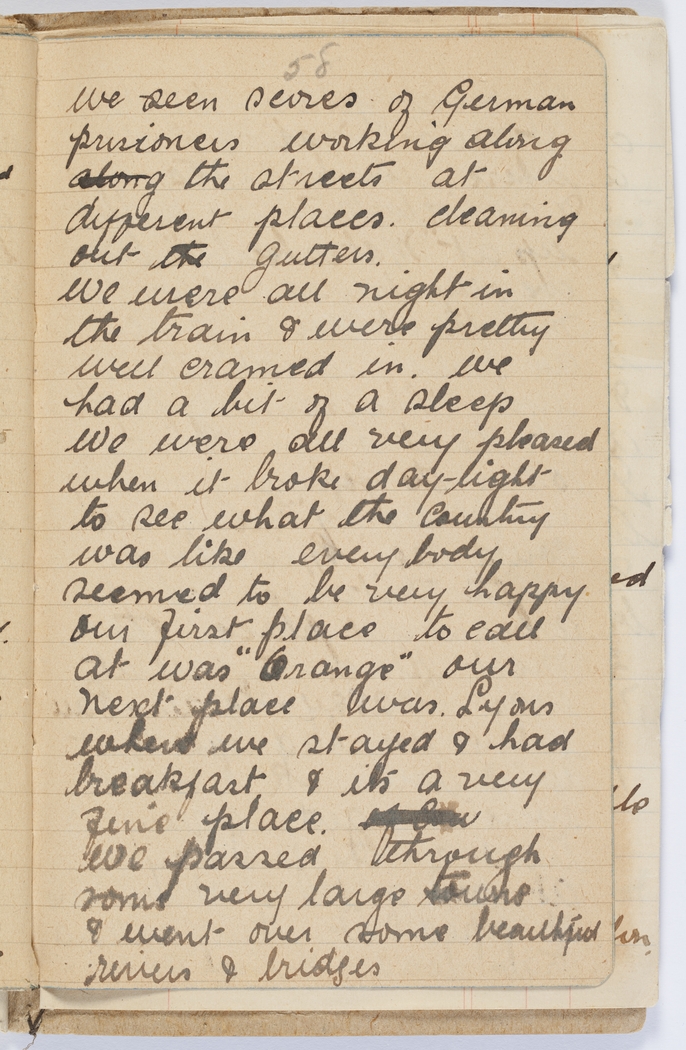 58
we seen scores of German
prisioners working along
along the streets at
different places. cleaning
out the gutters.
We were all night in
the train & were pretty
well cramed in. we
had a bit of a sleep
We were all very pleased
when it broke day-light
to see what the country
was like every body
seemed to be very happy
our first place to call
at was "Orange" our
next place was. Lyons
where we stayed & had
breakfast & its a very
fine place.
We passed through
some very large towns
& went over some beautiful
rivers & bridges